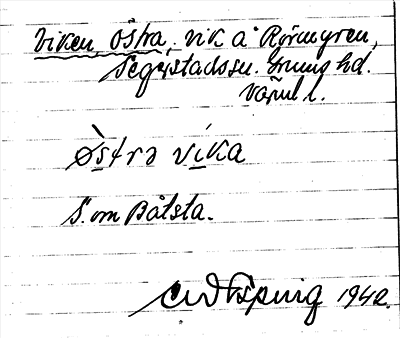 Viken, Östra, vik å Rörmyren,
Segerstads sn. Grums hd.
Värml l.
Østra vika
S. om Båtsta.
1942.